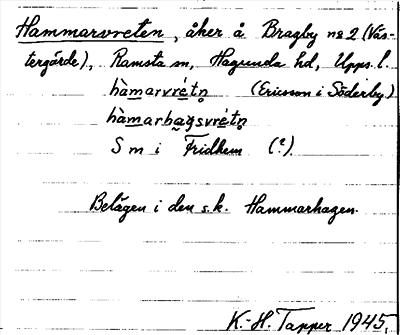 Hammarvreten, åker å Bragby no 2 (Väs-
tergårde), Ramsta sn, Hagunda hd, Upps. l.
hàmarvré̱tn̥ (Ericsson i Söderby)
hàmarhagsvré̱tn̥
S m i Fridhem (?)
Belägen i den s.k. Hammarhagen.
K.-H. Tapper 1945.